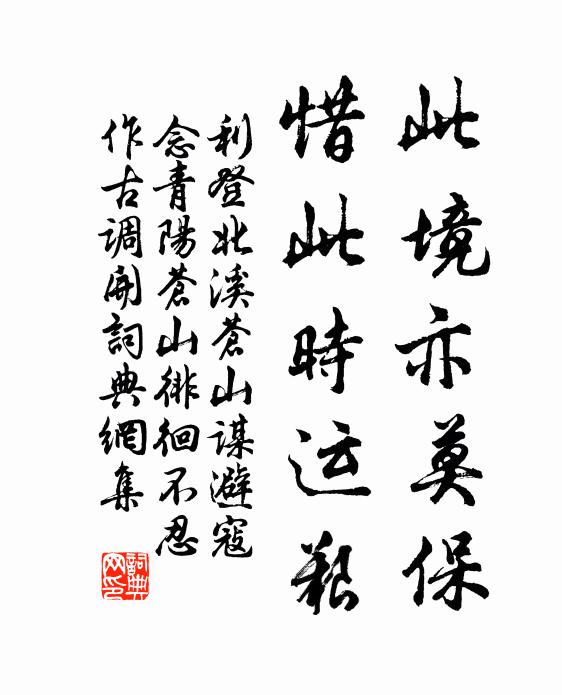 此境亦莫保
惜此時运艱
利登北溪蒼山謀避寇
念青陽蒼山徘徊不忍
作古調開詞典網集
詞典
网印